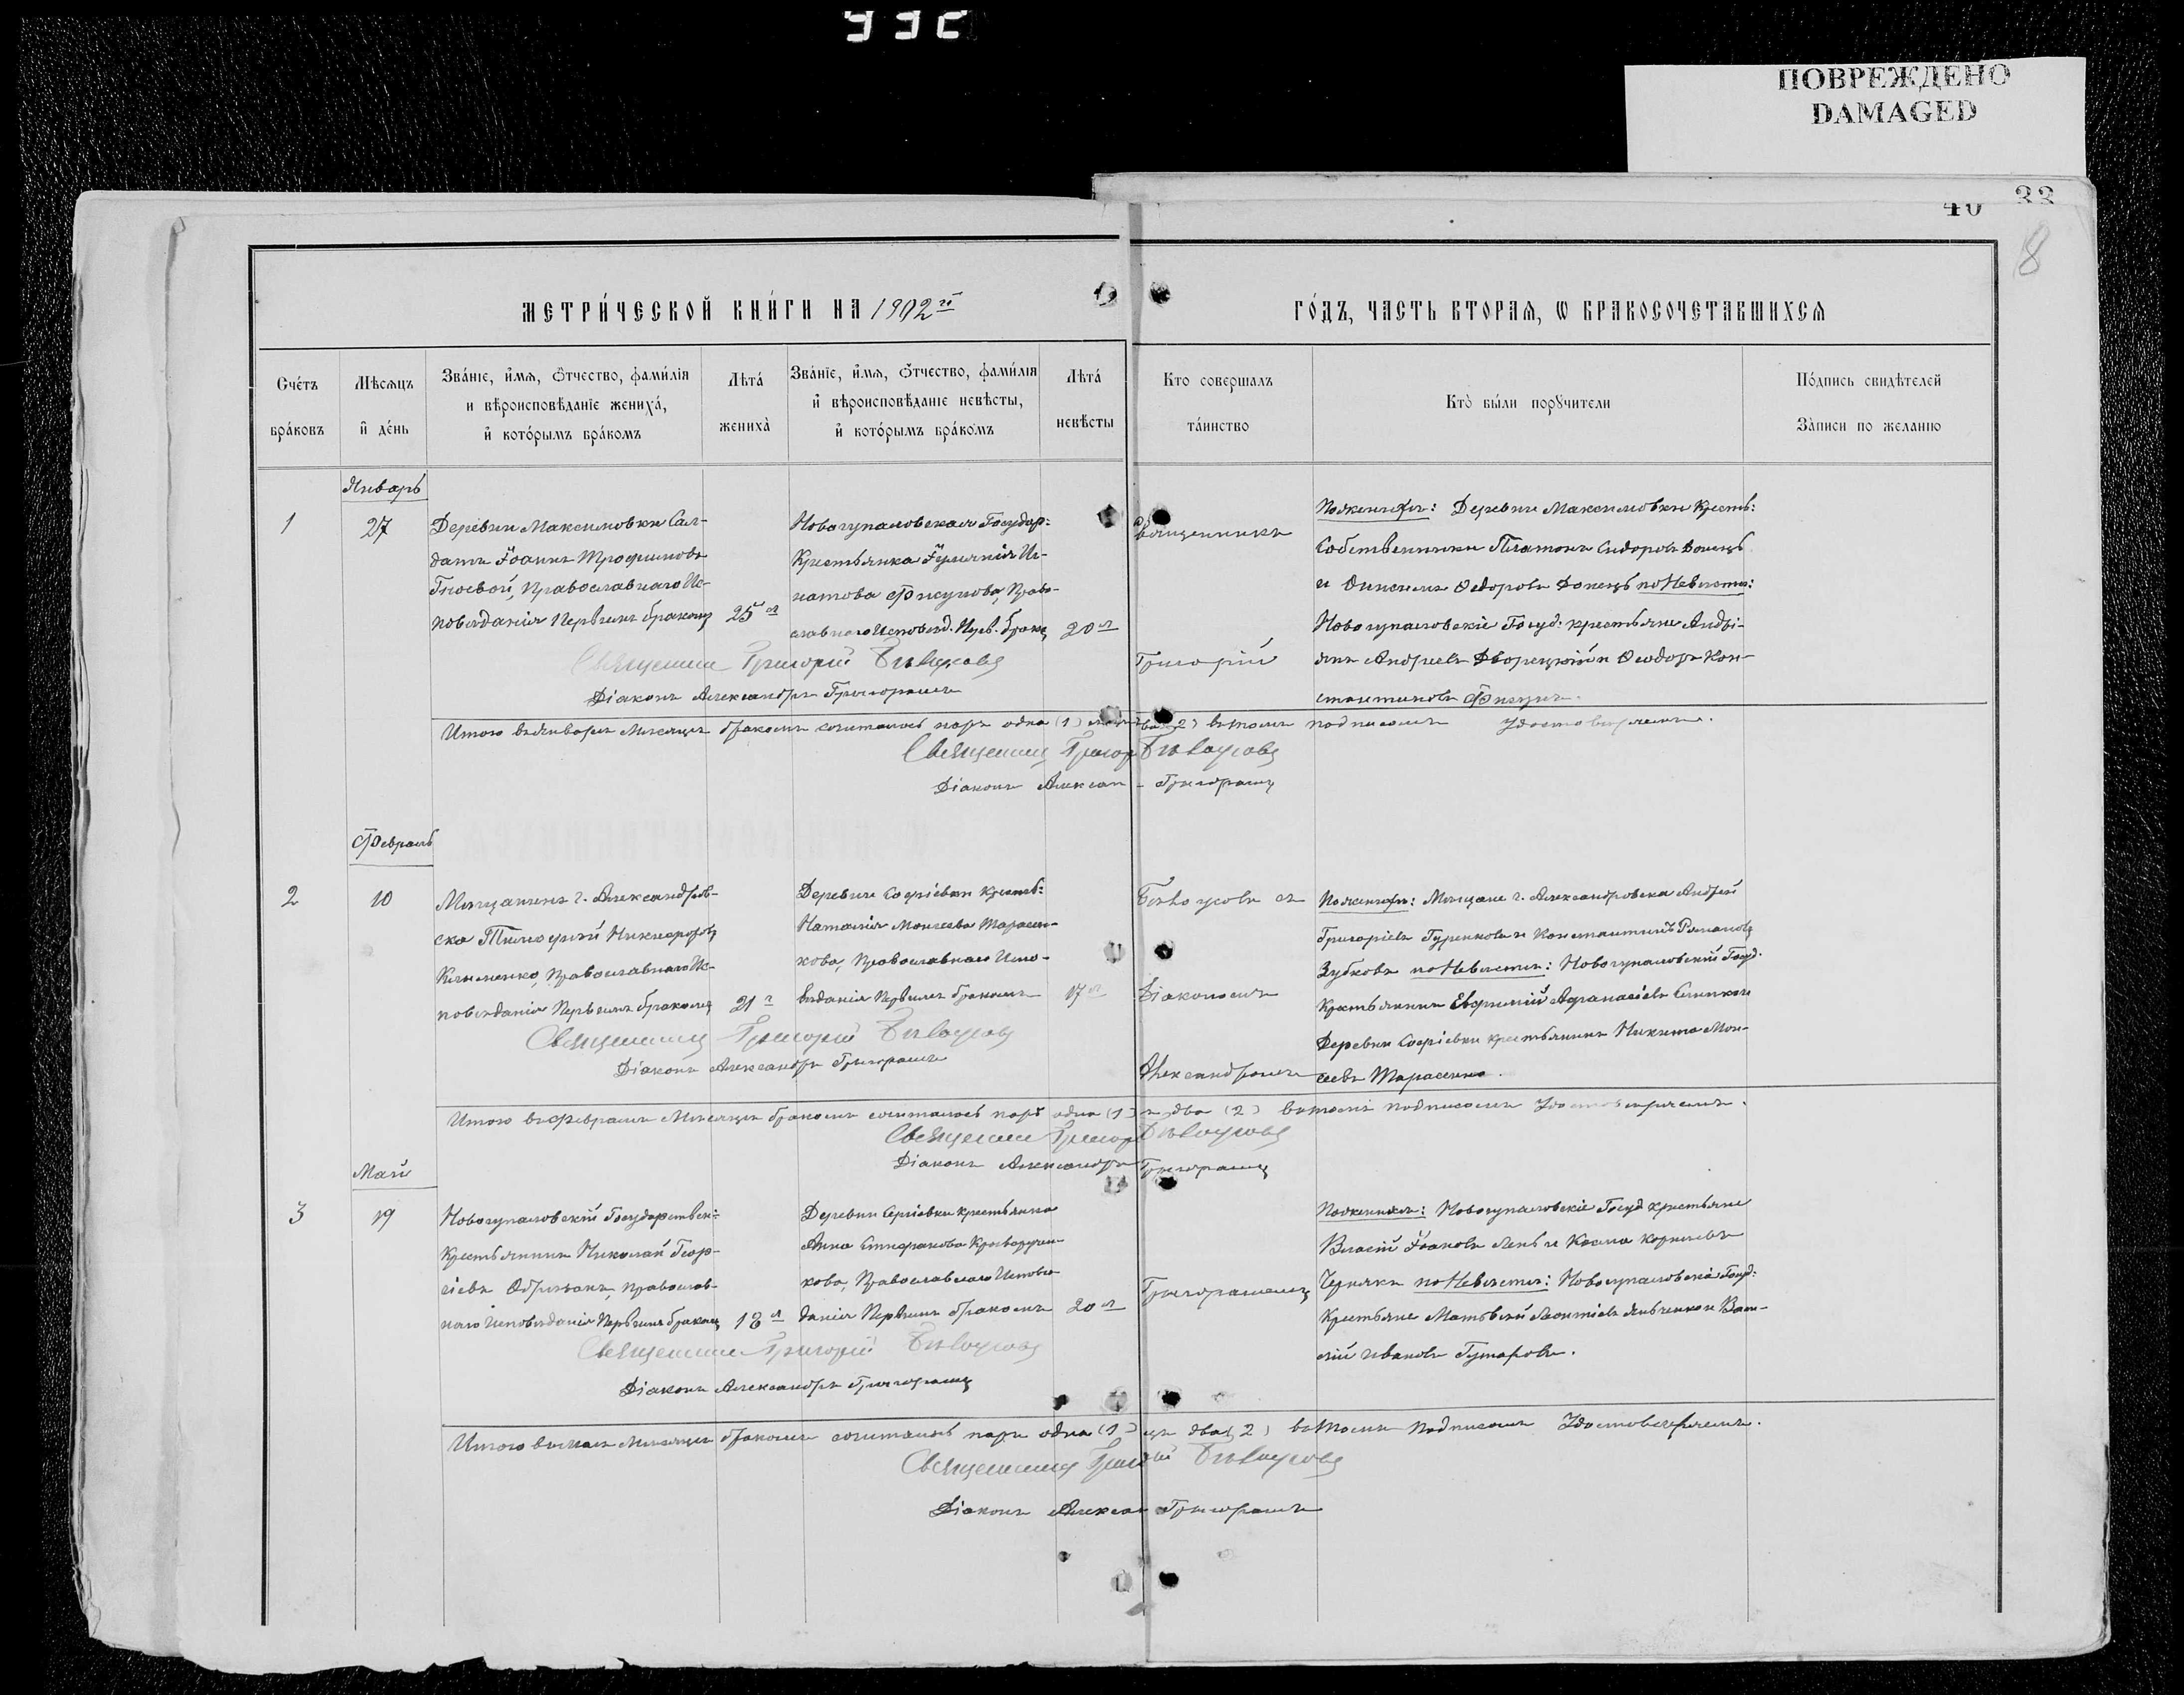 932
ПОВРЕЖДЕНО
DAMAGED
40 33
8
МЕТРИ́ЧЕСКОЙ КНИ́ГИ НА 1902 й
ГО́ДЪ, ЧАСТЬ ВТОРАѦ, Ѡ БРАКОСОЧЕТАВШИХСѦ
Сче́тъ бра́ковъ
Мѣсѧцъ и̂ де́нь
Зва́нїе, и҆́мѧ, ѻ҆́тчество, фами́лїѧ и вѣроисповѣ́данїе жениха́, и҆ кото́рымъ бра́комъ
Лѣта́ жениха̀
Зва́нїе, и҆́мѧ, ѻ҆́тчество, фами́лїѧ и҆ вѣроисповѣ́данїе невѣ́сты, и҆ кото́рымъ бра́комъ
Лѣта́ невѣ́сты
Кто соверша́лъ та́инство
Кто̀ бы́ли порꙋчители
По́дпись свидѣ́телей За́писи по желанію
Январь
1
27
Деревни Максимовки Сол-
датъ Іоаннъ Трофимовъ
Гноевой, Православнаго Ис-
повѣданія Первымъ бракомъ
25 л
Новогупаловская Государ:
Крестьянка Іуліанія Иг-
натова Фисунова, Право-
славнаго Исповѣд. Перв. бракъ
20 л
Священникъ
Григорій
По женихѣ: Деревни Максимовки Кресть:
Собственники Платонъ Сидоровъ Донецъ
и Онисимъ Ѳедоровъ Донецъ по Невѣстѣ:
Новогупаловскіе Госуд: крестьяне Андрі-
янъ Андреевъ Дворецкій и Ѳеодоръ Кон-
стантиновъ Фисунъ.
Священникъ Григорій Бѣлоусовъ
Діаконъ Александръ Григорашъ
Итого въ Январѣ Мѣсяцѣ бракомъ сочиталось паръ одна (1) (2) въ томъ подписомъ Удостовѣряемъ.
Священникъ Григор Бѣлоусовъ
Діаконъ Алексан Григорашъ
Февраль
2
10
Мѣщанинъ г. Александров-
ска Тимоѳей Никифоровъ
Клименко, Православнаго Ис-
повѣданія Первымъ бракомъ
21 г
Деревни Софіевки Кресть:
Наталія Моисеева Тарасен-
кова, Православнаго Испо-
вѣданія Первымъ бракомъ
17 л
Бѣлоусовъ съ
Діакономъ
Александромъ
По женихѣ: Мѣщане г. Александровска Андрей
Григоріевъ Гуренковъ и Константинъ Романовъ
Зубковъ по Невѣстѣ: Новогупаловскій Госуд.
Крестьянинъ Евфимій Аѳанасіевъ
Деревни Софіевки крестьянинъ Никита Мои-
сеевъ Тарасенко.
Священникъ Григорій Бѣлоусовъ
Діаконъ Александръ Григорашъ
Итого въ Февралѣ Мѣсяцѣ бракомъ сочиталось паръ одна (1) два (2) въ томъ подписомъ Удостовѣряемъ.
Священникъ Григор Бѣлоусовъ
Діаконъ Александръ Григорашъ
Май
3
19
Новогупаловскій Государствен:
Крестьянинъ Николай Геор-
гіевъ Православ-
наго Исповѣданія Первымъ бракомъ
18 л
Деревни Сергіевки крестьянка
Анна Стефанова
кова, Православнаго Исповѣ-
данія Первымъ бракомъ
20 л
Григорашемъ
По женихѣ: Новогупаловскіе Госуд крестьяне
Власій Іоановъ Лень и Косма Корниевъ
Чернякъ по Невѣстѣ: Новогупаловскіе Госуд:
Крестьяне Матѳей Леонтіевъ и Васи-
лій Ивановъ Гутаровъ.
Священникъ Григорій Бѣлоусовъ
Діаконъ Александръ Григорашъ
Итого въ Маѣ Мѣсяцѣ бракомъ сочиталось паръ одна (1) два (2) въ томъ подписомъ Удостовѣряемъ.
Священникъ Григорій Бѣлоусовъ
Діаконъ Алексан Григорашъ